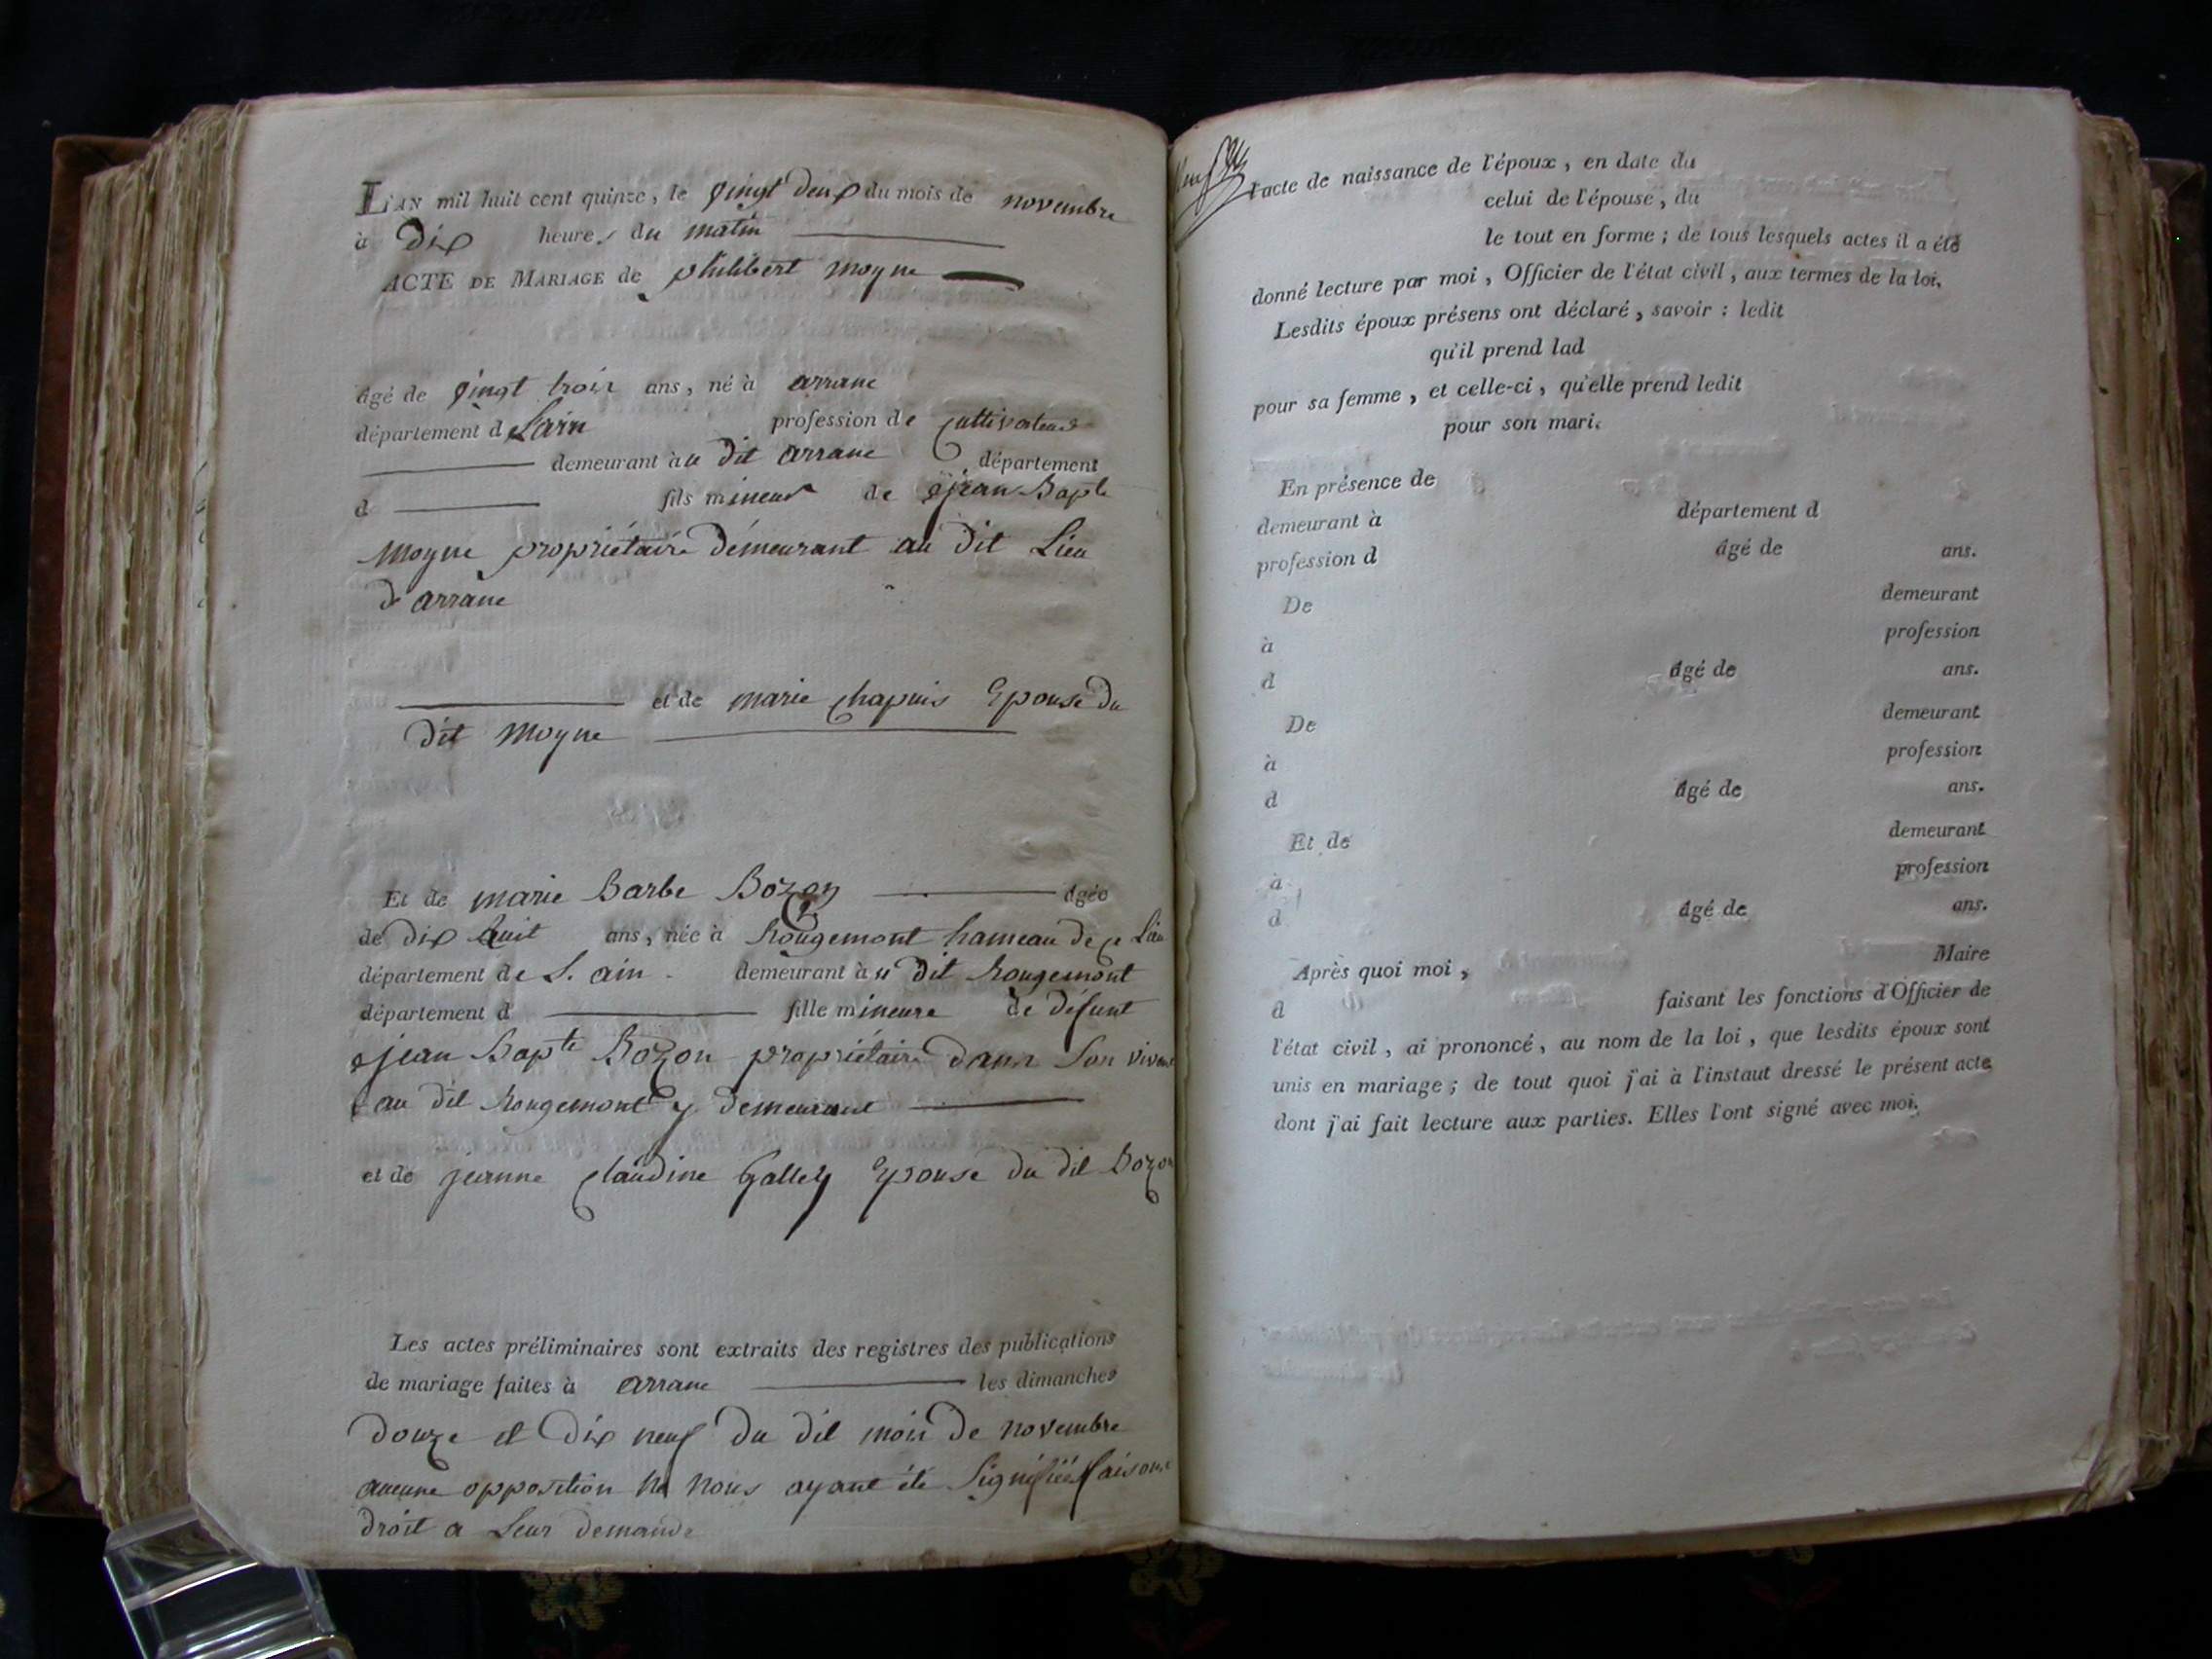 L'AN mil huit cent quinze, le vingt deux du mois de novembre
à dix heures du matin
ACTE DE MARIAGE de philibert moyne
âgé de vingt trois ans, né à arranc
département de Lain profession de cultivateur
demeurant au dit arranc département
d fils mineur de jean Bapte
moyne propriétaire démeurant au dit Lieu
d'arranc
et de marie chapuis Epouse du
dit moyne
Et de marie Barbe Bozon âgée
de dix huit ans, née à Rougemont hameau de ce Lieu
département de L. ain demeurant au dit Rougemont
département d fille mineure de défunt
jean Bapte Bozon propriétaire dans Son vivant
au dit Rougemont y demeurant
et de jeanne claudine Galley Epouse du dit Bozon
Les actes préliminaires sont extraits des registres des publications
de mariage faites à arranc les dimanches
douze et dix neuf du dit mois de novembre
aucune opposition ne nous ayant été Signifiée faisons
droit a Leur demande
l'acte de naissance de l'époux, en date du
celui de l'épouse, du
le tout en forme; de tous lesquels actes il a été
donné lecture par moi, Officier de l'état civil, aux termes de la loi.
Lesdits époux présens ont déclaré, savoir: ledit
qu'il prend lad
pour sa femme, et celle-ci, qu'elle prend ledit
pour son mari.
En présence de
demeurant à département d
profession d âgé de ans.
De demeurant
à profession
d âgé de ans.
De demeurant
à profession
d âgé de ans.
Et de demeurant
à profession
d âgé de ans.
Après quoi moi, Maire
d faisant les fonctions d'Officier de
l'état civil, ai prononcé, au nom de la loi, que lesdits époux sont
unis en mariage; de tout quoi j'ai à l'instaut dressé le présent acte
dont j'ai fait lecture aux parties. Elles l'ont signé avec moi.